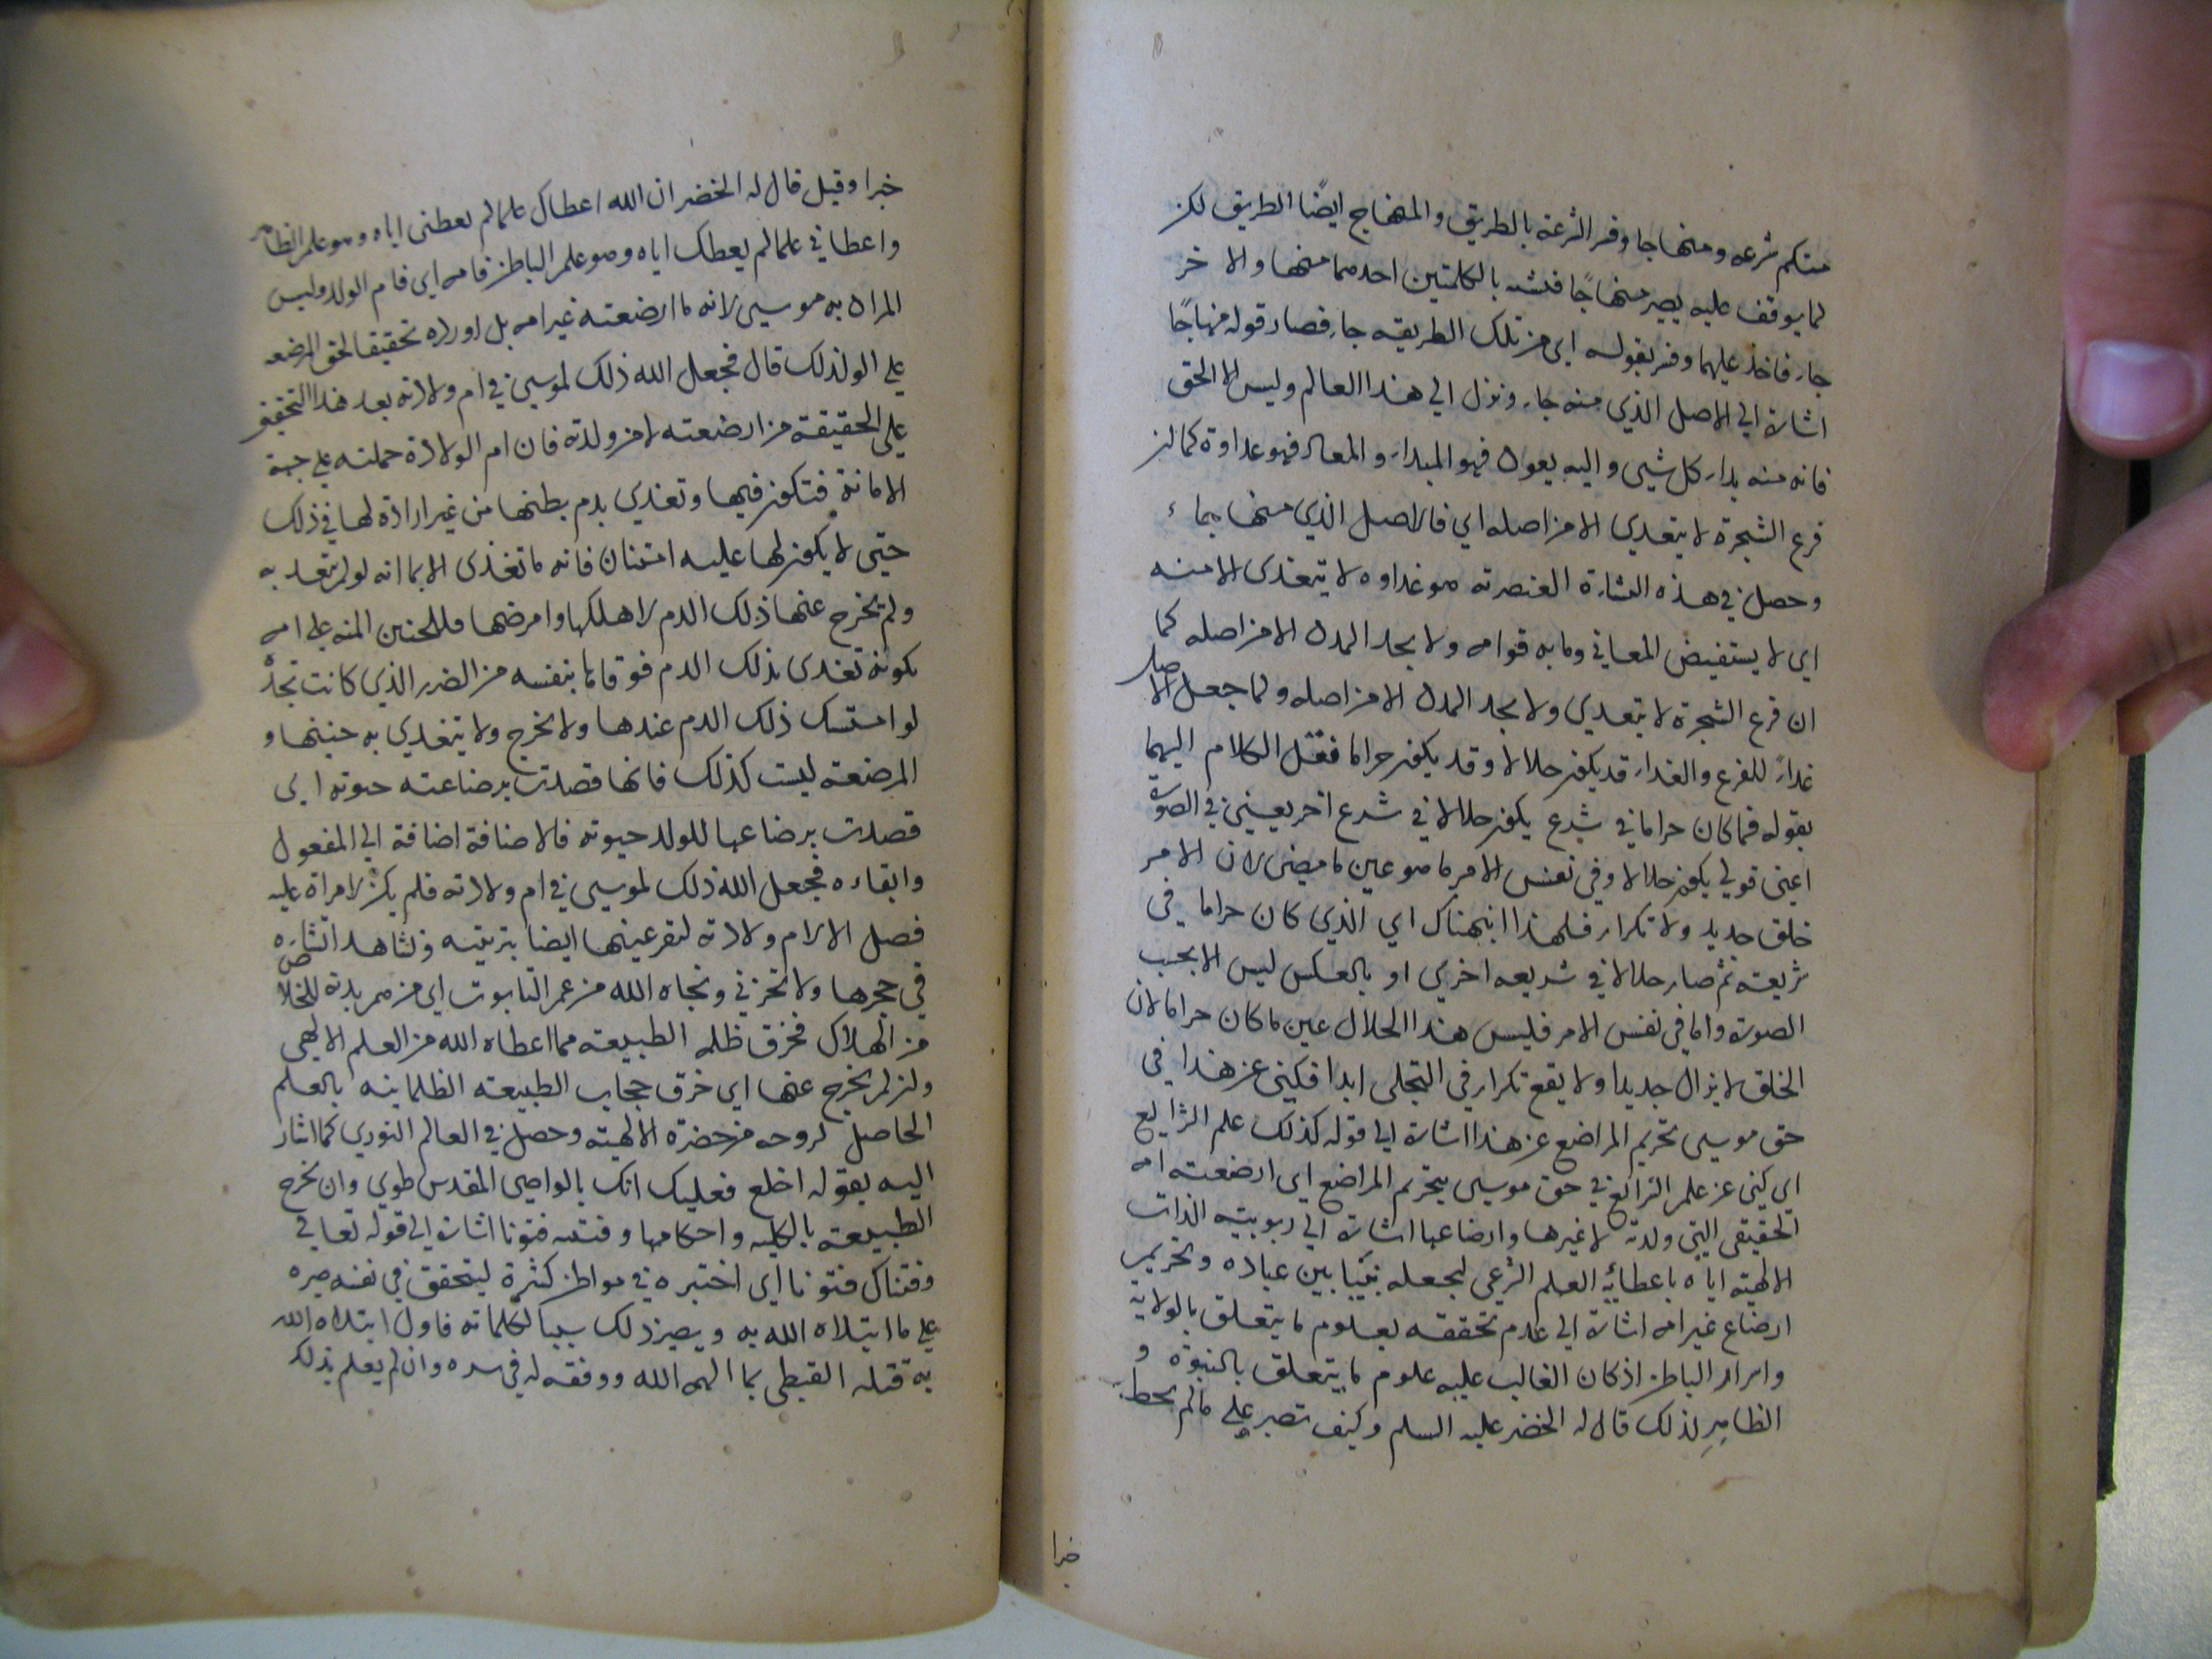 منكم شرعه ومنهاجا وفسر الشرعة بالطريق والمنهاج ايضًا الطريق لكن
لما يوقف عليه يصير منهاجًا فشبه بالكلمتين احدهما منها والاخر
جاء فاخذ عليهما وفسر بقوله اي من تلك الطريقه جاء فصار قوله منهاجًا
اشارة الي الاصل الذي منه جاء ونزل الي هذا العالم وليس الا الحق
فانه منه بداء كل شيى واليه يعود فهو المبداء والمعاد فهو غداوه كما ان
فرع الشجرة لا يتغدي الا من اصله اي فالاصل الذي منها جاء
وحصل في هذه النشاءة العنصرته هو غداوه لا يتغدى الا منه
اي لا يستفيض المعاني وما به قوامه ولا يجد المدد الا من اصله كما
ان فرع الشجرة لا يتغدي ولا يجد المدد الا من اصله ولما جعل الاصل
غداءً للفرع والغداء قد يكون حلالا وقد يكون حراما فنقل الكلام اليهما
بقوله فما كان حراما في شرع يكون حلالا في شرع اخر يعنيني في الصورة
اعني قولي يكون حلالا وفي نفس الامر ما هو عين ما مضى لان الامر
خلق جديد ولا تكرار فلهذا انبهناك اي الذي كان حراما في
شريعته ثم صار حلالا في شريعه اخري او بالعكس ليس الا بحسب
الصورة واما في نفس الامر فليس هذا الحلال عين ما كان حراما لان
الخلق لا يزال جديدا ولا يقع تكرار في التجلى ابدا فكنى عن هذا في
حق موسى تحريم المراضع عن هذا اشارة الي قوله كذلك علم الشرايع
اي كنى عن علم الشرائع في حق موسى بتحريم المراضع اي ارضعته امه
الحقيقى التي ولدته لا غيرها وارضاعها اشارة الي ربوبيته الذات
الالهية اياه باعطائه العلم الشرعي لجعله نبيًا بين عباده وتحريم
ارضاع غير امه اشارة الي عدم تحققه بعلوم ما يتعلق بالولاية
واسرار الباطن اذ كان الغالب عليه علوم ما يتعلق بالنبوة و
الظاهر لذلك قال له الخضر عليه السلم وكيف تصبر علي مالم تحط به
خبرا
خبرا وقيل قال له الخضر ان الله اعطاك علما لم يعطنى اياه وهو علم الظاهر
واعطاني علما لم يعطك اياه وهو علم الباطن فامه اي فام الولد وليس
المراد به موسى لانه ما ارضعته غير امه بل اورده تحقيقا لحق المرضعه
علي الولد لذلك قال فجعل الله ذلك لموسى في ام ولادته بعد هذا التحقيق
علي الحقيقة من ارضعته لا من ولدته فان ام الولادة حملته علي جهة
الامانة فتكون فيها وتغدي بدم بطنها من غير ارادة لها في ذلك
حتى لا يكون لها عليه امتنان فانه ما تغذى الا بما انه لو لم يتغد به
ولم يخرج عنها ذلك الدم لاهلكها وامرضها فللجنين المنه علي امه
بكونه تغدى بذلك الدم فوقاها بنفسه من الضرر الذي كانت تجدْ
لو امتسك ذلك الدم عندها ولا يخرج ولا يتغدي به جنينها و
المرضعة ليست كذلك فانها قصدت برضاعته حيوته اي
قصدت برضاعها للولد حيوته فالاضافة اضافة الي المفعول
وابقاءه فجعل الله ذلك لموسى في ام ولادته فلم يكن لامراة عليه
فصل الا لام ولادته لتقر عينها ايضا بتربيته وتشاهد انشاءه
في حجرها ولا تحزن ونجاه الله من غم التابوت اي من هم بدنه للخلاص
من الهلاك فخرق ظلمه الطبيعة مما اعطاه الله من العلم الالهي
وان لم يخرج عنها اي خرق حجاب الطبيعته الظلمانيه بالعلم
الحاصل لروحه من حضرة الالهيته وحصل في العالم النوري كما اشار
اليه بقوله اخلع نعليك انك بالواحي المقدس طوي وان يخرج
الطبيعته بالكليه واحكامها وفتنه فتونا اشارة الي قوله تعالي
وفتناك فتونا اي اختبره في مواطن كثيرة ليتحقق في نفسه صبره
علي ما ابتلاه الله به ويصير ذلك سببا لكمالاته فاول ابتلاه الله
به قتله القبطى بما الهمه الله ووفقه له في سره وان لم يعلم بذلك